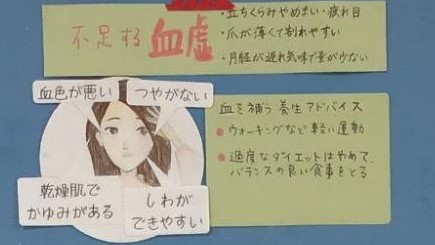 不足する 血虚
・立ちくらみやめまい・疲れ目
・爪が薄くて割れやすい
・月経が遅れ気味で量が少ない
血色が悪い
つやがない
乾燥肌で
かゆみがある
しわが
できやすい
血を補う養生アドバイス
● ウォーキングなど軽い運動
● 過度なダイエットはやめて、
バランスの良い食事をとる